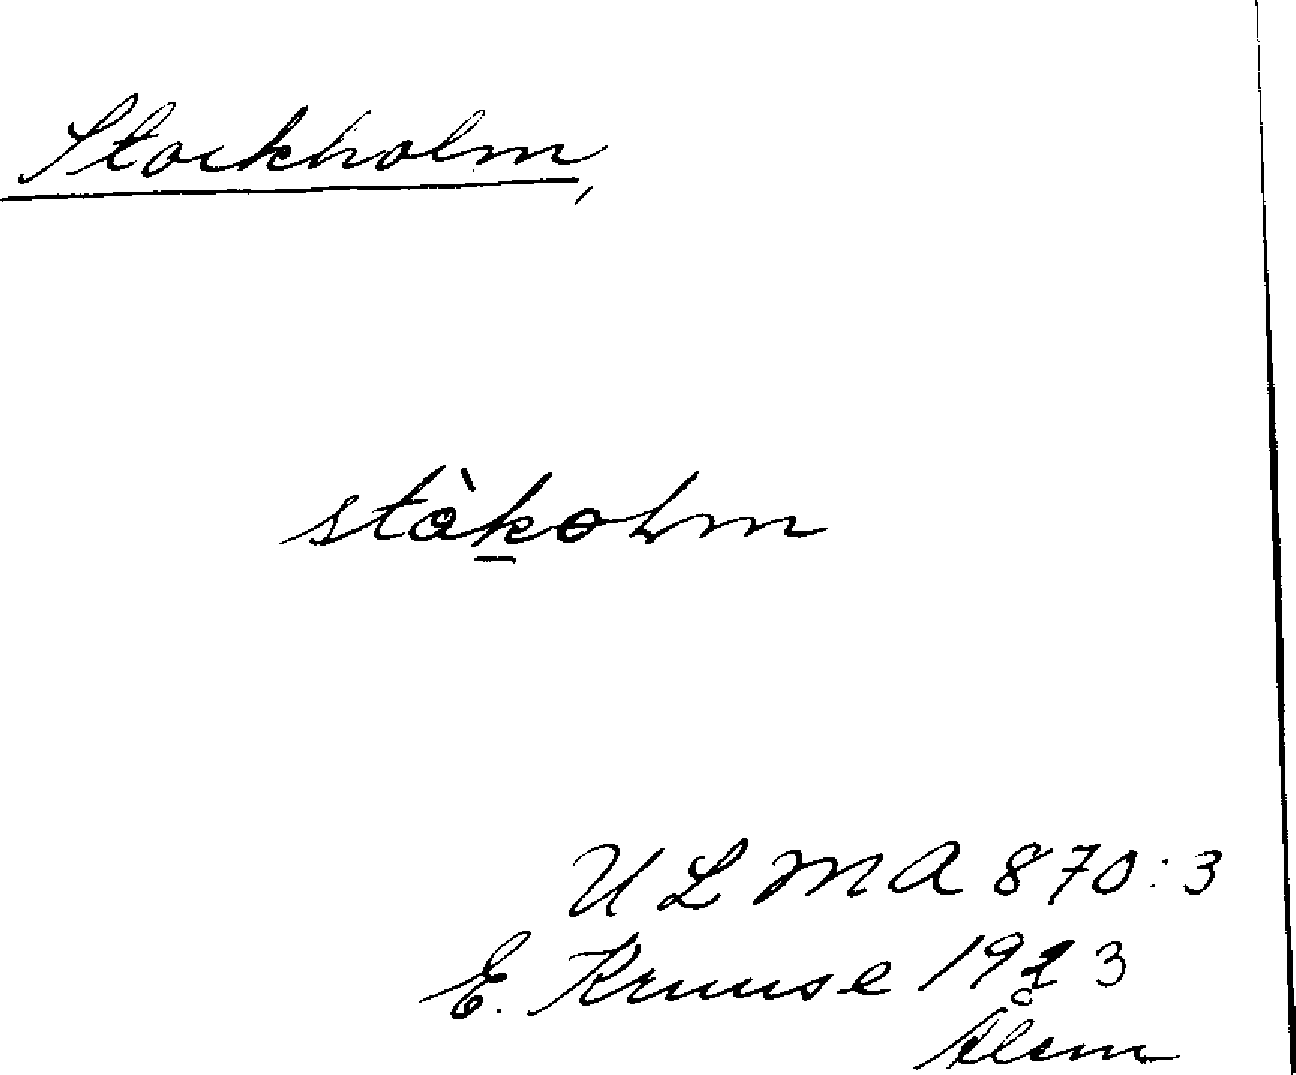 Stockholm,
stàkolm
ULMA 870:3
E. Kruuse 1923
Ålem